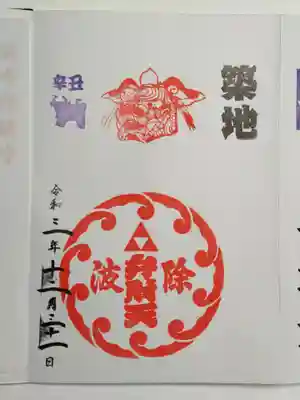 築地
辛丑
波除
弁財天
令和三年十二月三十一日